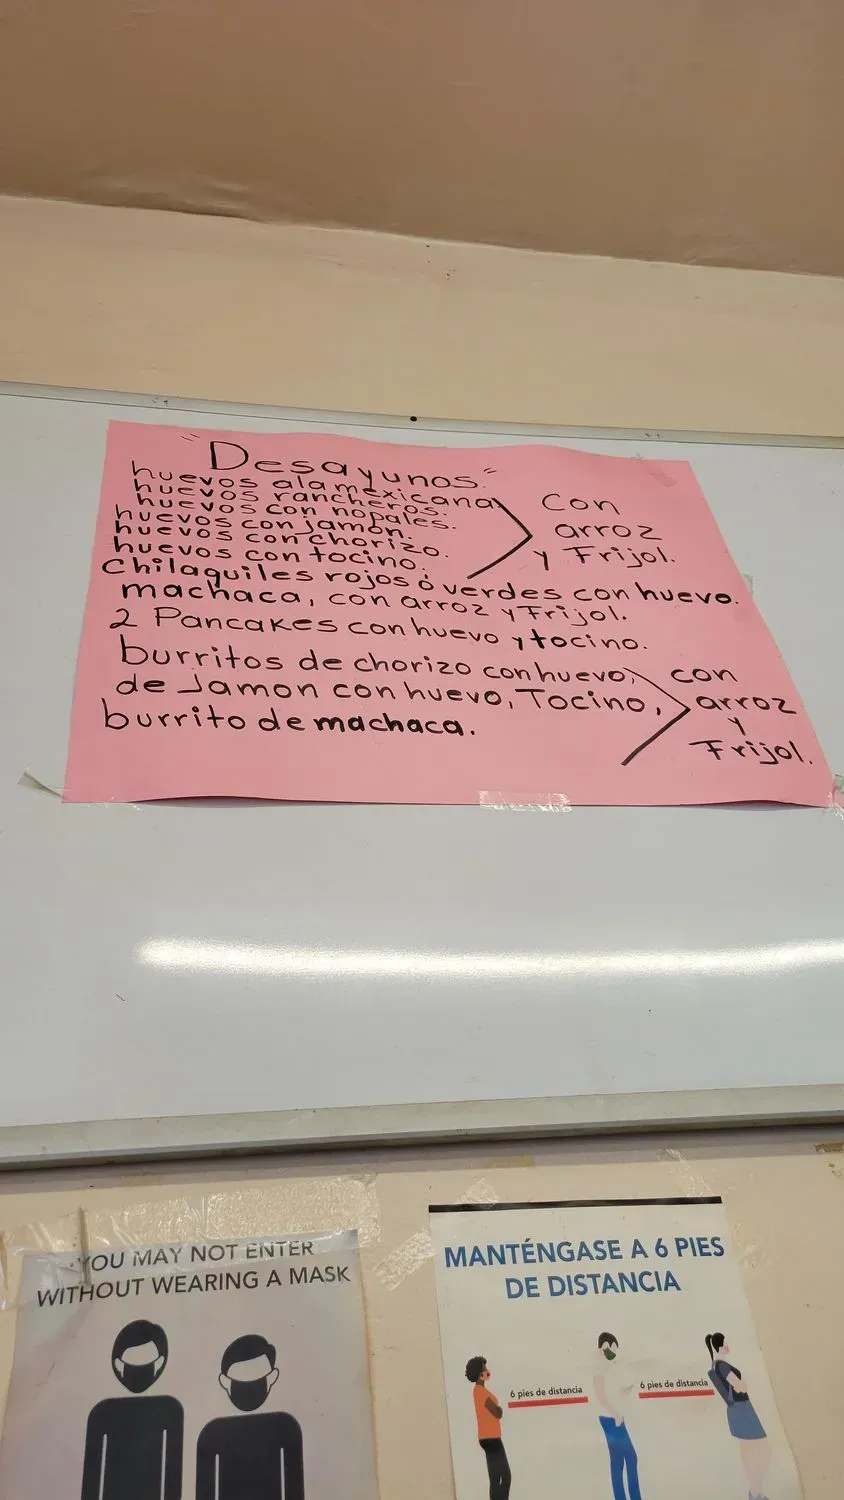 "Desayunos"
huevos ala mexicana
huevos rancheros.
huevos con nopales.
huevos con jamón.
huevos con chorizo.
huevos con tocino.
con
arroz
y Frijol.
Chilaquiles rojos ó verdes con huevo.
machaca, con arroz y Frijol.
2 Pancakes con huevo y tocino.
burritos de chorizo con huevo,
de Jamon con huevo, Tocino,
burrito de machaca.
con
arroz
y
Frijol.
YOU MAY NOT ENTER
WITHOUT WEARING A MASK
MANTÉNGASE A 6 PIES
DE DISTANCIA
6 pies de distancia
6 pies de distancia